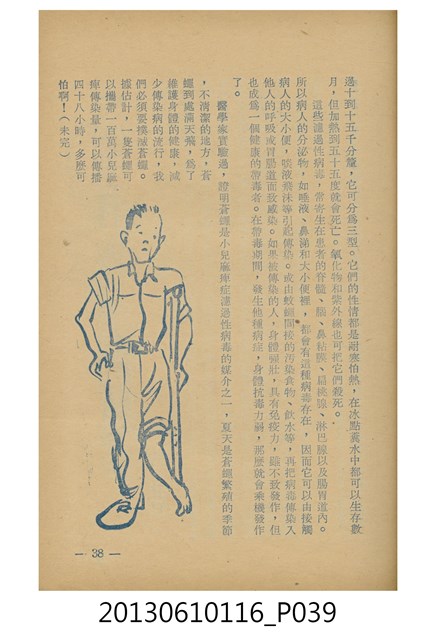 邊十到十五千分釐，它可分爲三型。它們的性情都是耐寒怕熱，在冰點蒸水中都可以生存數
月，但加熱到五十五度就會死亡。氧化物和紫外線也可把它們殺死。
這些濾過性病毒，常寄生在患者的脊髓、腦、鼻粘膜、扁桃腺、淋巴腺以及腸胃道內。
所以病人的分泌物，如唾液、鼻涕和大小便裡，都會有這種病毒存在，因而它可以由接觸
病人的大小便，咳液飛沫等引起傳染。或由蚊蠅間接的污染食物、飲水等，再把病毒傳染入
他人的呼吸或胃腸道而致感染。如果被傳染的人，身體强壯，具有免疫力，雖不致發作，但
也成爲一個健康的帶毒者。在帶毒期間，發生他種病症，身體抗毒力弱，那麼就會乘機發作
了。
醫學家實驗過，證明蒼蠅是小兒麻痺症濾過性病毒的媒介之一，夏天是蒼蠅繁殖的季節
，不清潔的地方，蒼
蠅到處滿天飛，爲了
維護身體的健康，減
少傳染病的流行，我
們必須要撲滅蒼蠅。
據估計，一隻蒼蠅可
以攜帶一百萬小兒麻
痺傳染量，可以傳播
四十八小時，多麼可
怕啊！（未完）
— 38 —
20130610116_P039